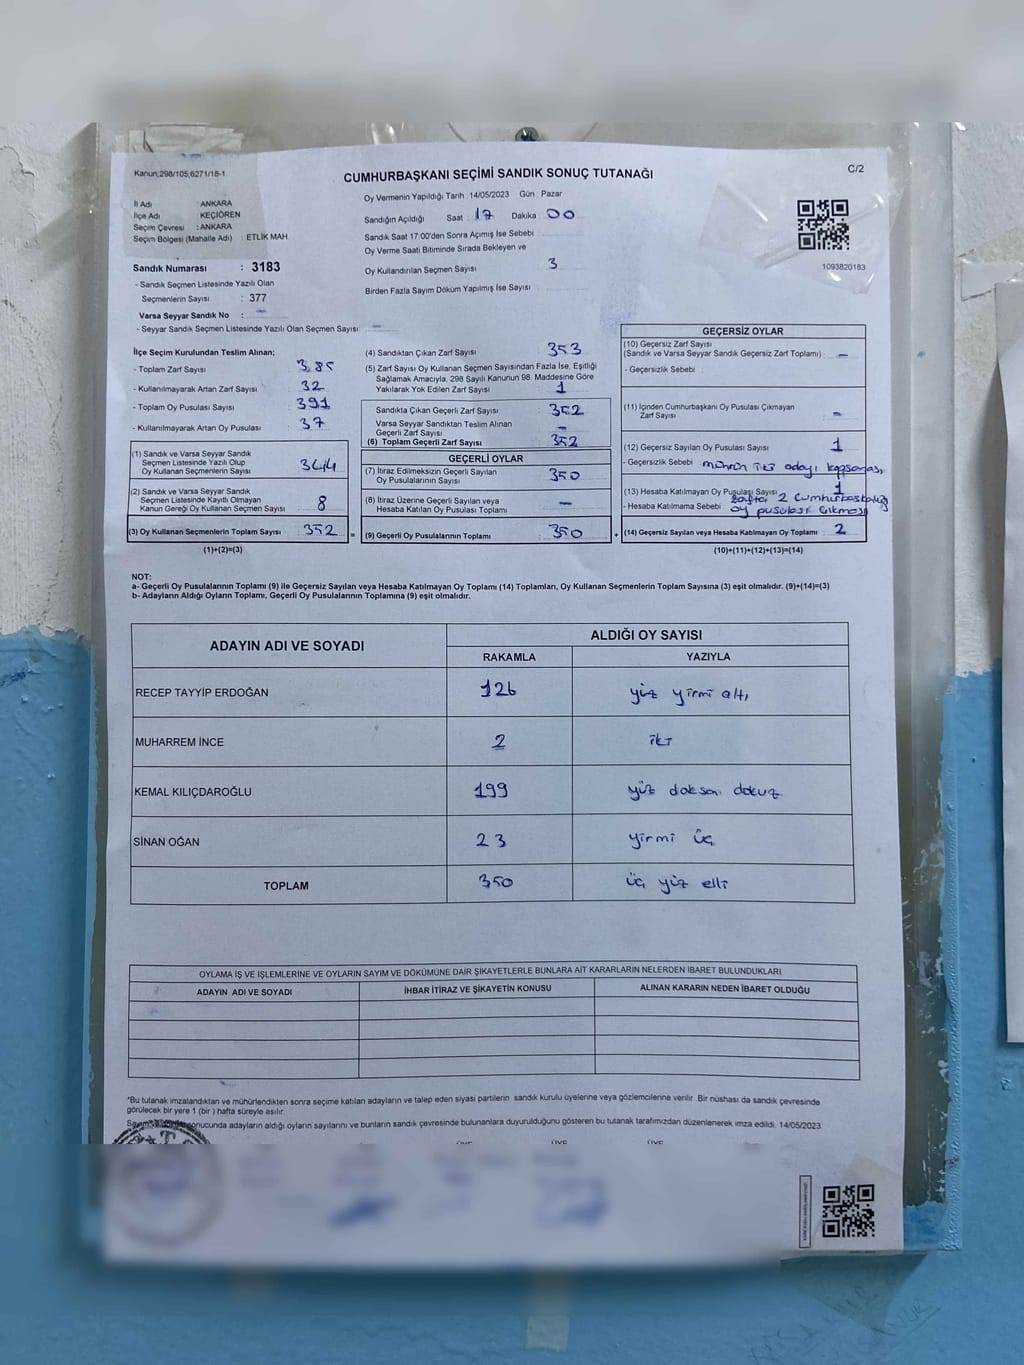 Kanun:298/105,6271/18-1
CUMHURBAŞKANI SEÇİMİ SANDIK SONUÇ TUTANAĞI
C/2
İl Adı : ANKARA
İlçe Adı : KEÇİÖREN
Seçim Çevresi : ANKARA
Seçim Bölgesi (Mahalle Adı) : ETLİK MAH.
Sandık Numarası : 3183
- Sandık Seçmen Listesinde Yazılı Olan
Seçmenlerin Sayısı : 377
Varsa Seyyar Sandık No : -
- Seyyar Sandık Seçmen Listesinde Yazılı Olan Seçmen Sayısı : -
Oy Vermenin Yapıldığı Tarih : 14/05/2023 Gün : Pazar
Sandığın Açıldığı Saat : 17 Dakika : 00
Sandık Saat 17:00'den Sonra Açımış İse Sebebi :
Oy Verme Saati Bitiminde Sırada Bekleyen ve
Oy Kullandırılan Seçmen Sayısı : 3
Birden Fazla Sayım Döküm Yapılmış İse Sayısı :
1093820183
İlçe Seçim Kurulundan Teslim Alınan;
- Toplam Zarf Sayısı : 385
- Kullanılmayarak Artan Zarf Sayısı : 32
- Toplam Oy Pusulası Sayısı : 391
- Kullanılmayarak Artan Oy Pusulası : 37
(1) Sandık ve Varsa Seyyar Sandık
Seçmen Listesinde Yazılı Olup
Oy Kullanan Seçmenlerin Sayısı : 344
(2) Sandık ve Varsa Seyyar Sandık
Seçmen Listesinde Kayıtlı Olmayan
Kanun Gereği Oy Kullanan Seçmen Sayısı : 8
(3) Oy Kullanan Seçmenlerin Toplam Sayısı : 352
(1)+(2)=(3)
(4) Sandıktan Çıkan Zarf Sayısı : 353
(5) Zarf Sayısı Oy Kullanan Seçmen Sayısından Fazla İse, Eşitliği
Sağlamak Amacıyla; 298 Sayılı Kanunun 98. Maddesine Göre
Yakılarak Yok Edilen Zarf Sayısı : 1
Sandıkta Çıkan Geçerli Zarf Sayısı : 352
Varsa Seyyar Sandıktan Teslim Alınan
Geçerli Zarf Sayısı : -
(6) Toplam Geçerli Zarf Sayısı : 352
GEÇERLİ OYLAR
(7) İtiraz Edilmeksizin Geçerli Sayılan
Oy Pusulalarının Sayısı : 350
(8) İtiraz Üzerine Geçerli Sayılan veya
Hesaba Katılan Oy Pusulası Toplamı : -
= (9) Geçerli Oy Pusulalarının Toplamı : 350
GEÇERSİZ OYLAR
(10) Geçersiz Zarf Sayısı
(Sandık ve Varsa Seyyar Sandık Geçersiz Zarf Toplamı) : -
- Geçersizlik Sebebi :
(11) İçinden Cumhurbaşkanı Oy Pusulası Çıkmayan
Zarf Sayısı : -
(12) Geçersiz Sayılan Oy Pusulası Sayısı : 1
- Geçersizlik Sebebi : mührün iki adayı kapsaması
(13) Hesaba Katılmayan Oy Pusulası Sayısı : 1
- Hesaba Katılmama Sebebi : zarftan 2 Cumhurbaşkanlığı
oy pusulası çıkması
+ (14) Geçersiz Sayılan veya Hesaba Katılmayan Oy Toplamı : 2
(10)+(11)+(12)+(13)=(14)
NOT:
a- Geçerli Oy Pusulalarının Toplamı (9) ile Geçersiz Sayılan veya Hesaba Katılmayan Oy Toplamı (14) Toplamları, Oy Kullanan Seçmenlerin Toplam Sayısına (3) eşit olmalıdır. (9)+(14)=(3)
b- Adayların Aldığı Oyların Toplamı, Geçerli Oy Pusulalarının Toplamına (9) eşit olmalıdır.
ADAYIN ADI VE SOYADI ALDIĞI OY SAYISI
RAKAMLA YAZIYLA
RECEP TAYYİP ERDOĞAN 126 yüz yirmi altı
MUHARREM İNCE 2 iki
KEMAL KILIÇDAROĞLU 199 yüz doksan dokuz
SİNAN OĞAN 23 yirmi üç
TOPLAM 350 üç yüz elli
OYLAMA İŞ VE İŞLEMLERİNE VE OYLARIN SAYIM VE DÖKÜMÜNE DAİR ŞİKAYETLERLE BUNLARA AİT KARARLARIN NELERDEN İBARET BULUNDUKLARI
ADAYIN ADI VE SOYADI İHBAR İTİRAZ VE ŞİKAYETİN KONUSU ALINAN KARARIN NEDEN İBARET OLDUĞU
*Bu tutanak imzalandıktan ve mühürlendikten sonra seçime katılan adayların ve talep eden siyasi partilerin sandık kurulu üyelerine veya gözlemcilerine verilir. Bir nüshası da sandık çevresinde
görülecek bir yere 1 (bir) hafta süreyle asılır.
sonucunda adayların aldığı oyların sayılarını ve bunların sandık çevresinde bulunanlara duyurulduğunu gösteren bu tutanak tarafımızdan düzenlenerek imza edildi. 14/05/2023
ÜYE ÜYE ÜYE